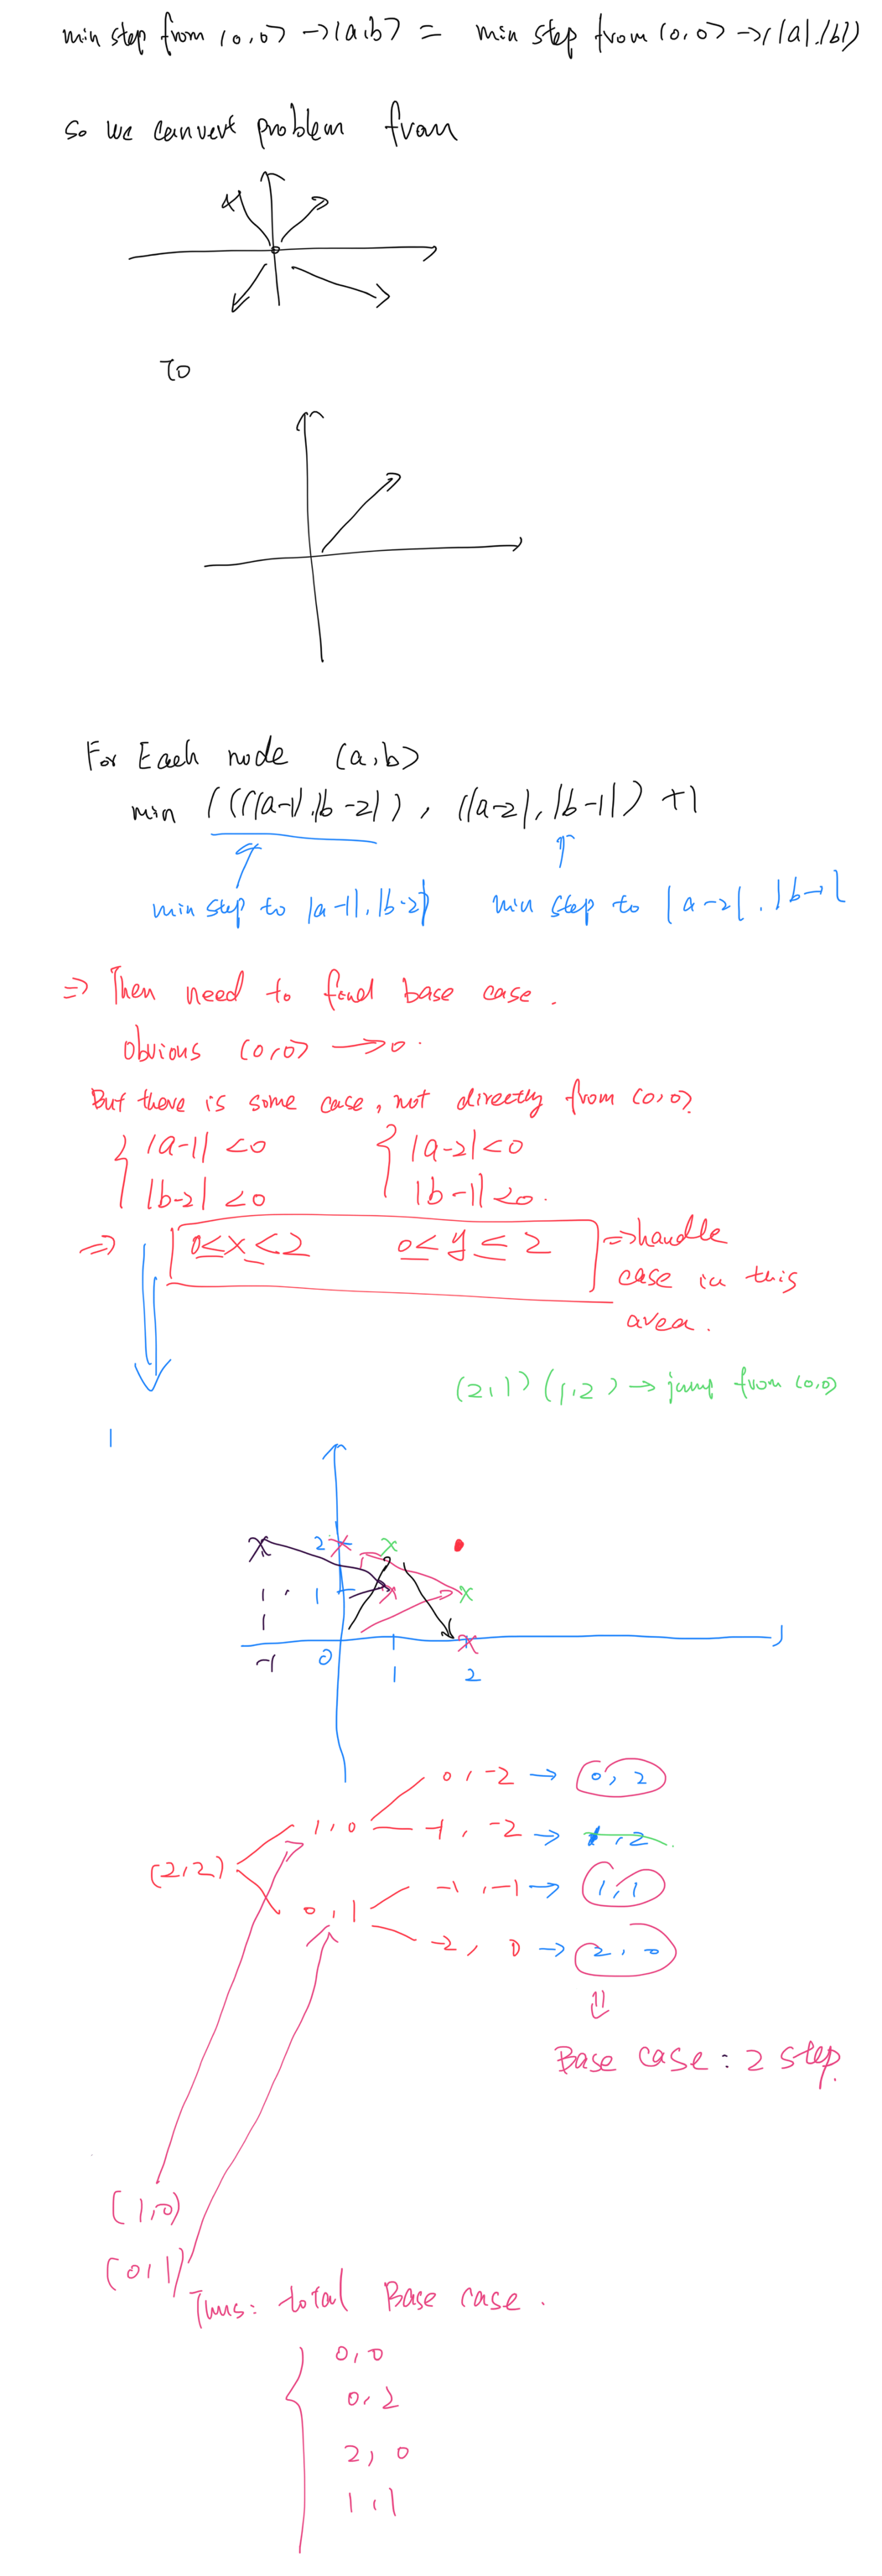 min step from (0,0) -> (a,b) = min step from (0,0) -> (|a|,|b|)
so we canvert problem from
To
For Each node (a,b)
min ((((a-1|,|b-2|), (|a-2|,|b-1|) +1
min step to |a-1|,|b-2| min step to |a-2|,|b-1|
=> Then need to find base case.
obvious (0,0) -> 0.
But there is some case, not directly from (0,0).
|a-1| <0 |a-2| <0
|b-2| <0 |b-1| <0.
=> 0≤x≤2 0≤y≤2 => handle
case in this
area.
(2,1) (1,2) -> jump from (0,0)
1
x 2 x x
1 1 x x
1
-1 0 1 2 x
0,-2 -> 0,2
1,0 -1,-2 -> 1,2
(2,2) -1,-1 -> 1,1
0,1 -2, 0 -> 2,0
Base case: 2 step.
(1,0)
(0,1)
Thus: total Base case.
0,0
0,2
2,0
1,1